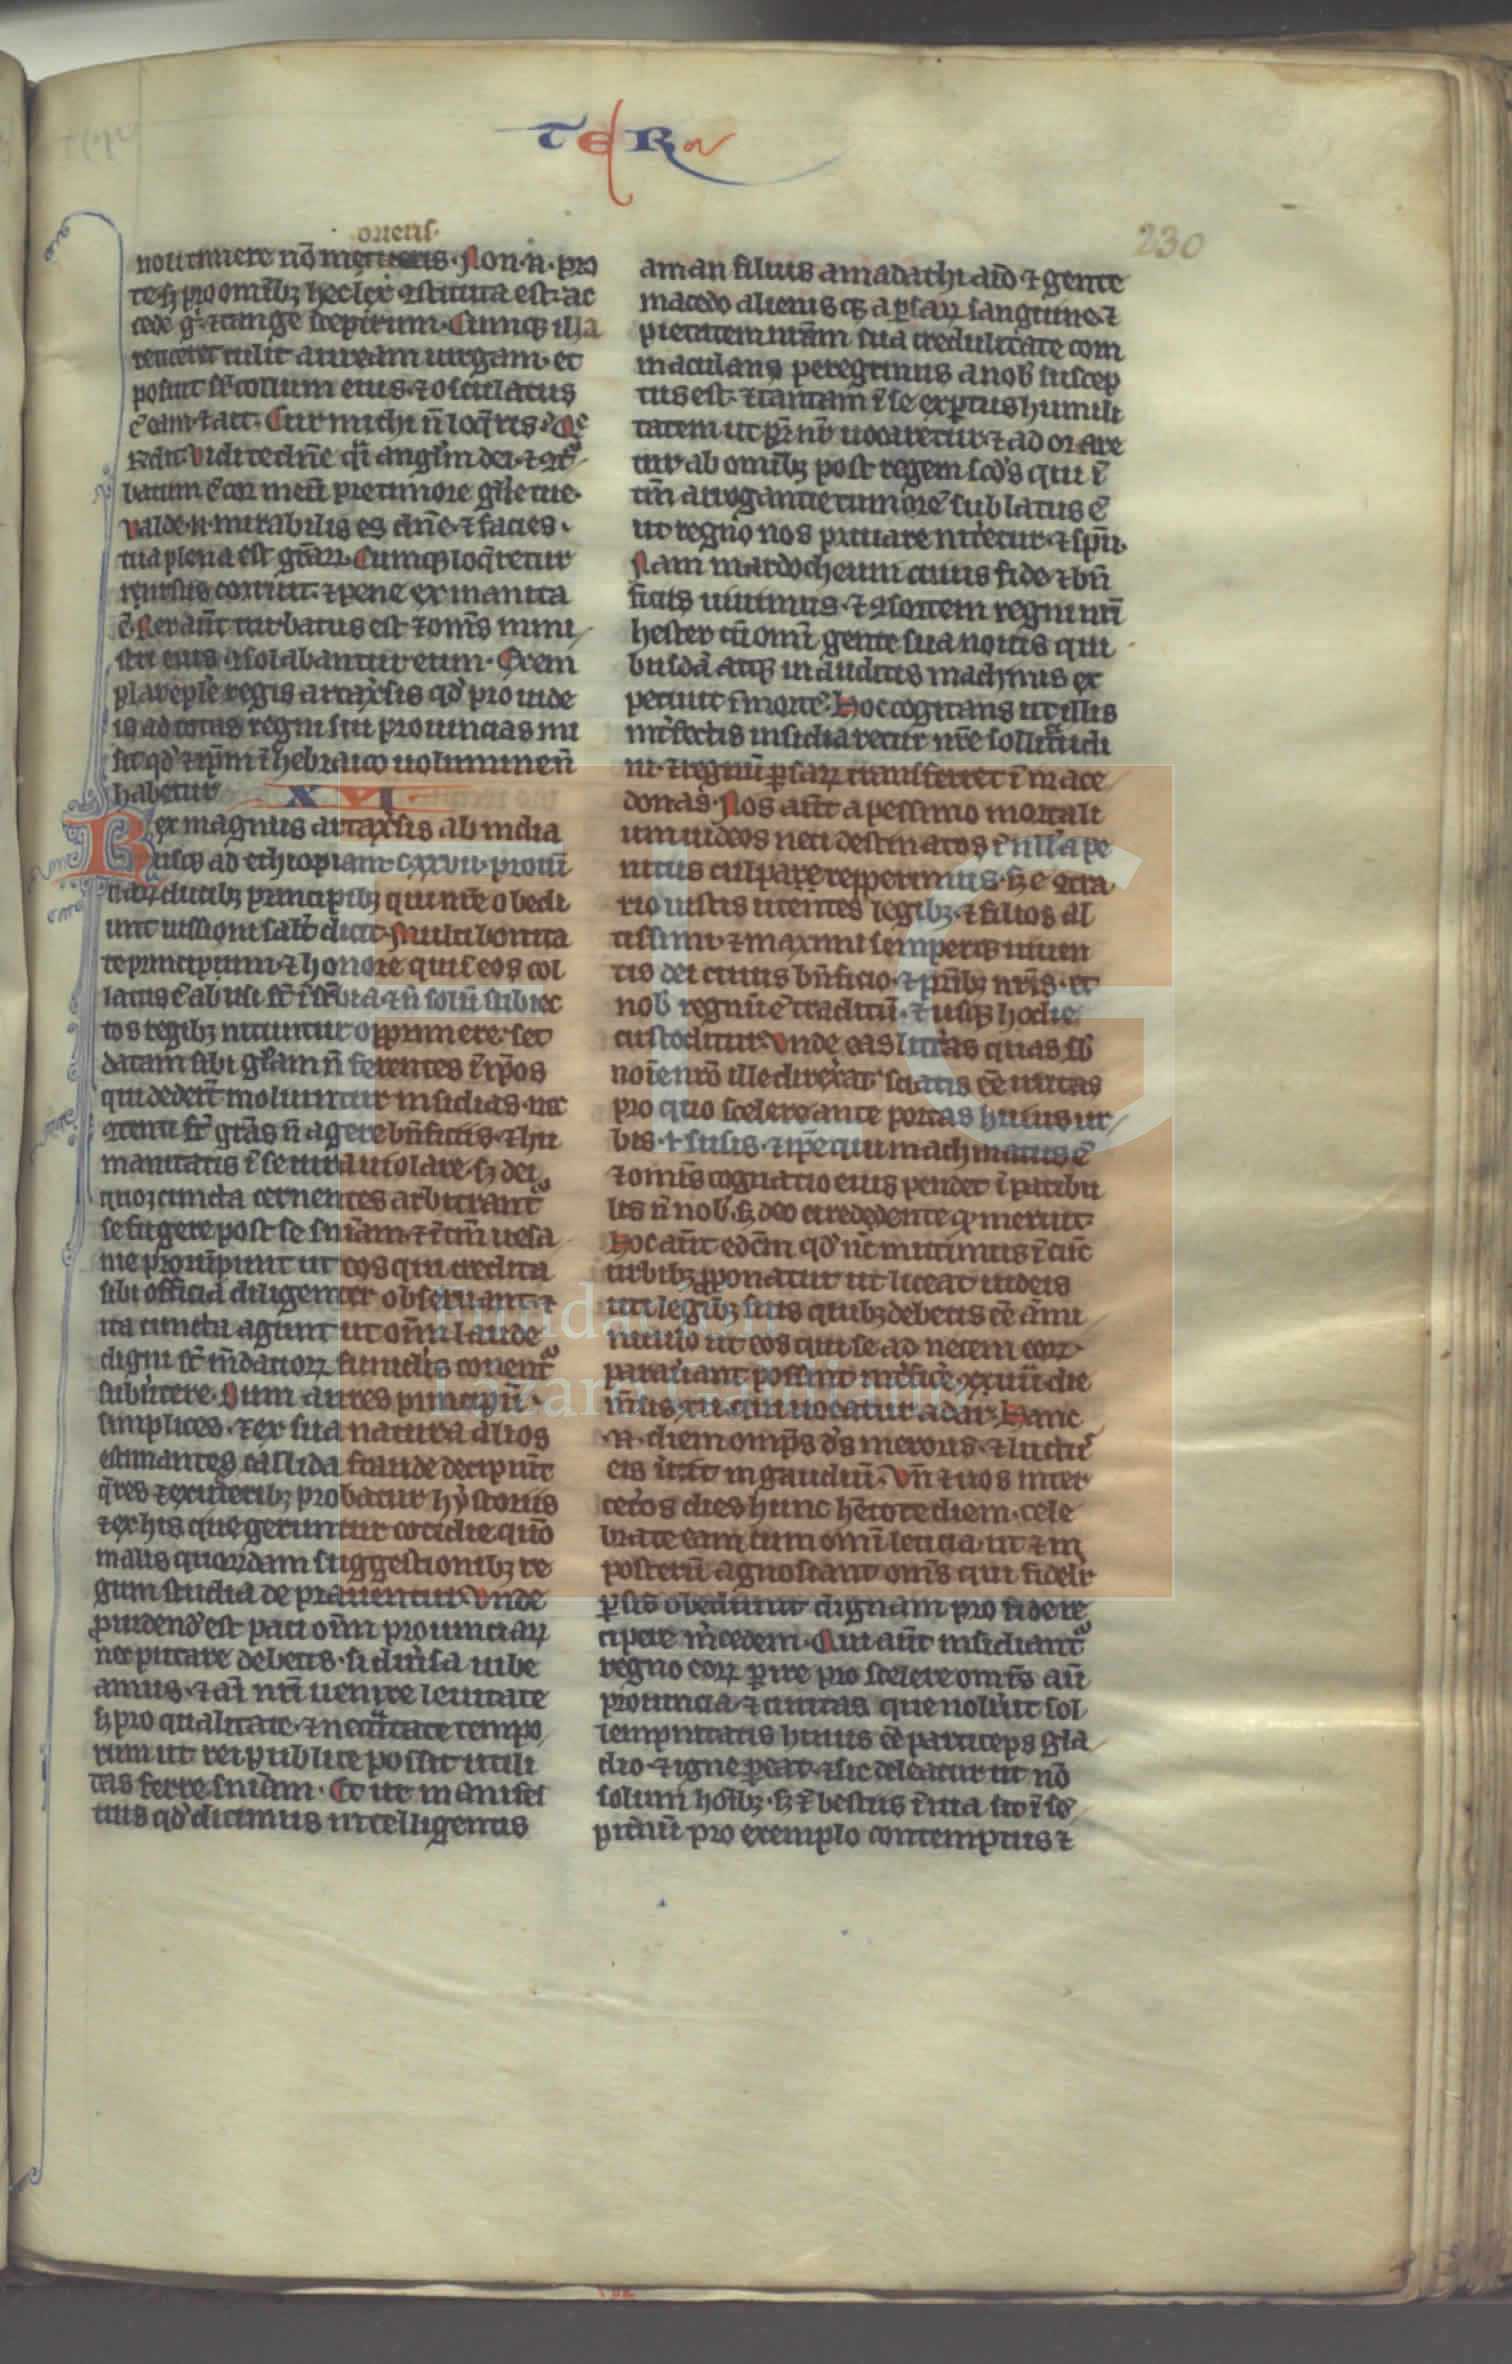 TER
230
oriens
noli timere nō metuens. Non .n. pro
te sꝫ pro omībꝫ hec lex ꝯstituta est. ac
cede gͦ. ⁊ tange sceptrum. Cumqꝫ illa
reticeret tulit auream uirgam. et
posuit sr̄ collum eius. ⁊ osculatus
ē eam ⁊ ait. Cur michi n̄ loq̄ris.
R̄dit. Vidi te dn̄e q̄i angl̄m dei. ⁊ ꝯtͬ
batum ē cor meū pre timore gl̄e tue.
valde .n. mirabilis es dn̄e. ⁊ facies
tua plena est gr̄aꝝ. Cumqꝫ loq̄retur
rursus corruit. ⁊ pene exanimata
ē. Rex aūt turbatus est ⁊ om̄s mini
stri eius ꝯsolabantur eum. Exem
plar eple regis artaxersis qd̓ pro iude
is ad totas regni sui prouincias mi
sit qd̓ ⁊ ip̄m ī hebraico uolumine n̄
habetur XVI.
Rex magnus artaxersis ab india
usqꝫ ad ethiopiam c.xxvii. prouī
tiaꝝ ducibꝫ ⁊ principibꝫ qui nr̄e obedi
unt iussioni sal̄t dicit. Multi bonita
te principum ⁊ honore qui ī eos col
latus ē abusi st̄ ī sup̄bia. ⁊ n̄ solū subiec
tos regibꝫ nituntur opprimere. set
datam sibi gl̄am n̄ ferentes ī ip̄os
qui dederūt moliuntur insidias. nec
ꝯtenti st̄ gr̄as n̄ agere bn̄ficiis. ⁊ hu
manitatis ī se iura uiolare. sꝫ dei
quoꝫ cuncta cernentis arbitrantͬ
se fugere posse sn̄iam. ⁊ ī tm̄ uesa
nie proruperunt ut eos qui credita
sibi officia diligenter obseruant. ⁊
ita cuncta agunt ut om̄i laude
digni st̄ mēdatioꝝ cuniculis conentͬ
subuertere. Dum aures principū
simplices. ⁊ ex sua natura alios
estimantes callida fraude decipiūt
q̄ res ⁊ ex ueteribꝫ probatur hystoriis
⁊ ex his que geruntur cotidie quō
malis quorūdam suggestionibꝫ re
gum studia deprauentur. Vnde
prouidendū est paci om̄i prouinciaꝝ
nec putare debetis. si diuersa iube
amus. ⁊ aī nr̄i uenire leuitate
sꝫ pro qualitate. ⁊ necessitate tempo
rum ut rei publice poscit utili
tas ferre sn̄iam. Et ut manifes
tius qd̓ dicimus intelligentis
aman filius amadathi aīo ⁊ gente
macedo alienusqꝫ a persaꝝ sanguine. ⁊
pietatem nr̄am sua credulitate com
maculans peregrinus a nob̓ suscep
tus est. ⁊ tantam ī se expertus humili
tatem ut pr̄ nr̄ uocaretur. ⁊ adorare
tur ab omībꝫ post regem scd̓s qui ī
tm̄ arrogantie tumorē sublatus ē
ut regno nos priuare niteretur. ⁊ spū.
Nam mardocheum cuius fide ⁊ bn̄
ficiis uiuimus. ⁊ ꝯsortem regni nr̄i
hester cū om̄i gente sua nouis qui
busdā atqꝫ inauditis machinis ex
petiuit ī mortē. Hoc cogitans ut illis
interfectis insidiaretur nr̄e sollitudi
ni. ⁊ regnū persaꝝ transferret ī mace
donas. Nos aūt a pessimo mortali
um iudeos neci destinatos ī nulla pe
nitus culpa repperimus. sꝫ e ꝯtra
rio iustis utentes legibꝫ. ⁊ filios al
tissimi. ⁊ maximi semperqꝫ uiuen
tis dei cuius bn̄ficio. ⁊ pr̄ibꝫ nr̄is. et
nob̓ regnū ē traditū. ⁊ usqꝫ hodie
custoditur. Vnde eas litteras quas sb̓
noīe nr̄o ille direxerat sciatis eē irritas
pro quo scelere ante portas huius ur
bis. i. susis. ⁊ ip̄e qui machinatus ē
⁊ om̄is cognatio eius pendet ī patibu
lis n̄ nob̓. sꝫ deo ei reddente qd̓ meruit.
Hoc aūt edc̄m qd̓ nc̄ mittimus ī cūc
urbibꝫ proponatur ut liceat iudeis
uti legibꝫ suis quibꝫ debetis eē ammi
niculo ut eos qui se ad necem eoꝝ
parauerant possint interficere. xiii. die
mēsis .xii. qui uocatur adar. Hanc
.n. diem omnip̄s ds̄ meroris. ⁊ luctus
eis uertit in gaudiū. Vn̄ ⁊ uos inter
ceteros dies hunc hētote diem. ⁊ cele
brate eam cum om̄i leticia. ut ⁊ in
posterū agnoscant om̄s qui fideliter
persis obediunt dignam pro fide re
cipere mercedem. Qui aūt insidiantͬ
regno eoꝝ perire pro scelere. omnis aūt
prouincia. ⁊ ciuitas que noluerit sol
lempnitatis huius eē particeps gla
dio. ⁊ igne pereat. ⁊ sic deleatur ut nō
solum hoībꝫ. sꝫ ⁊ bestiis inuia sit ī se
piternū pro exemplo contemptus ⁊
FLG
Fundación
Lázaro Galdiano